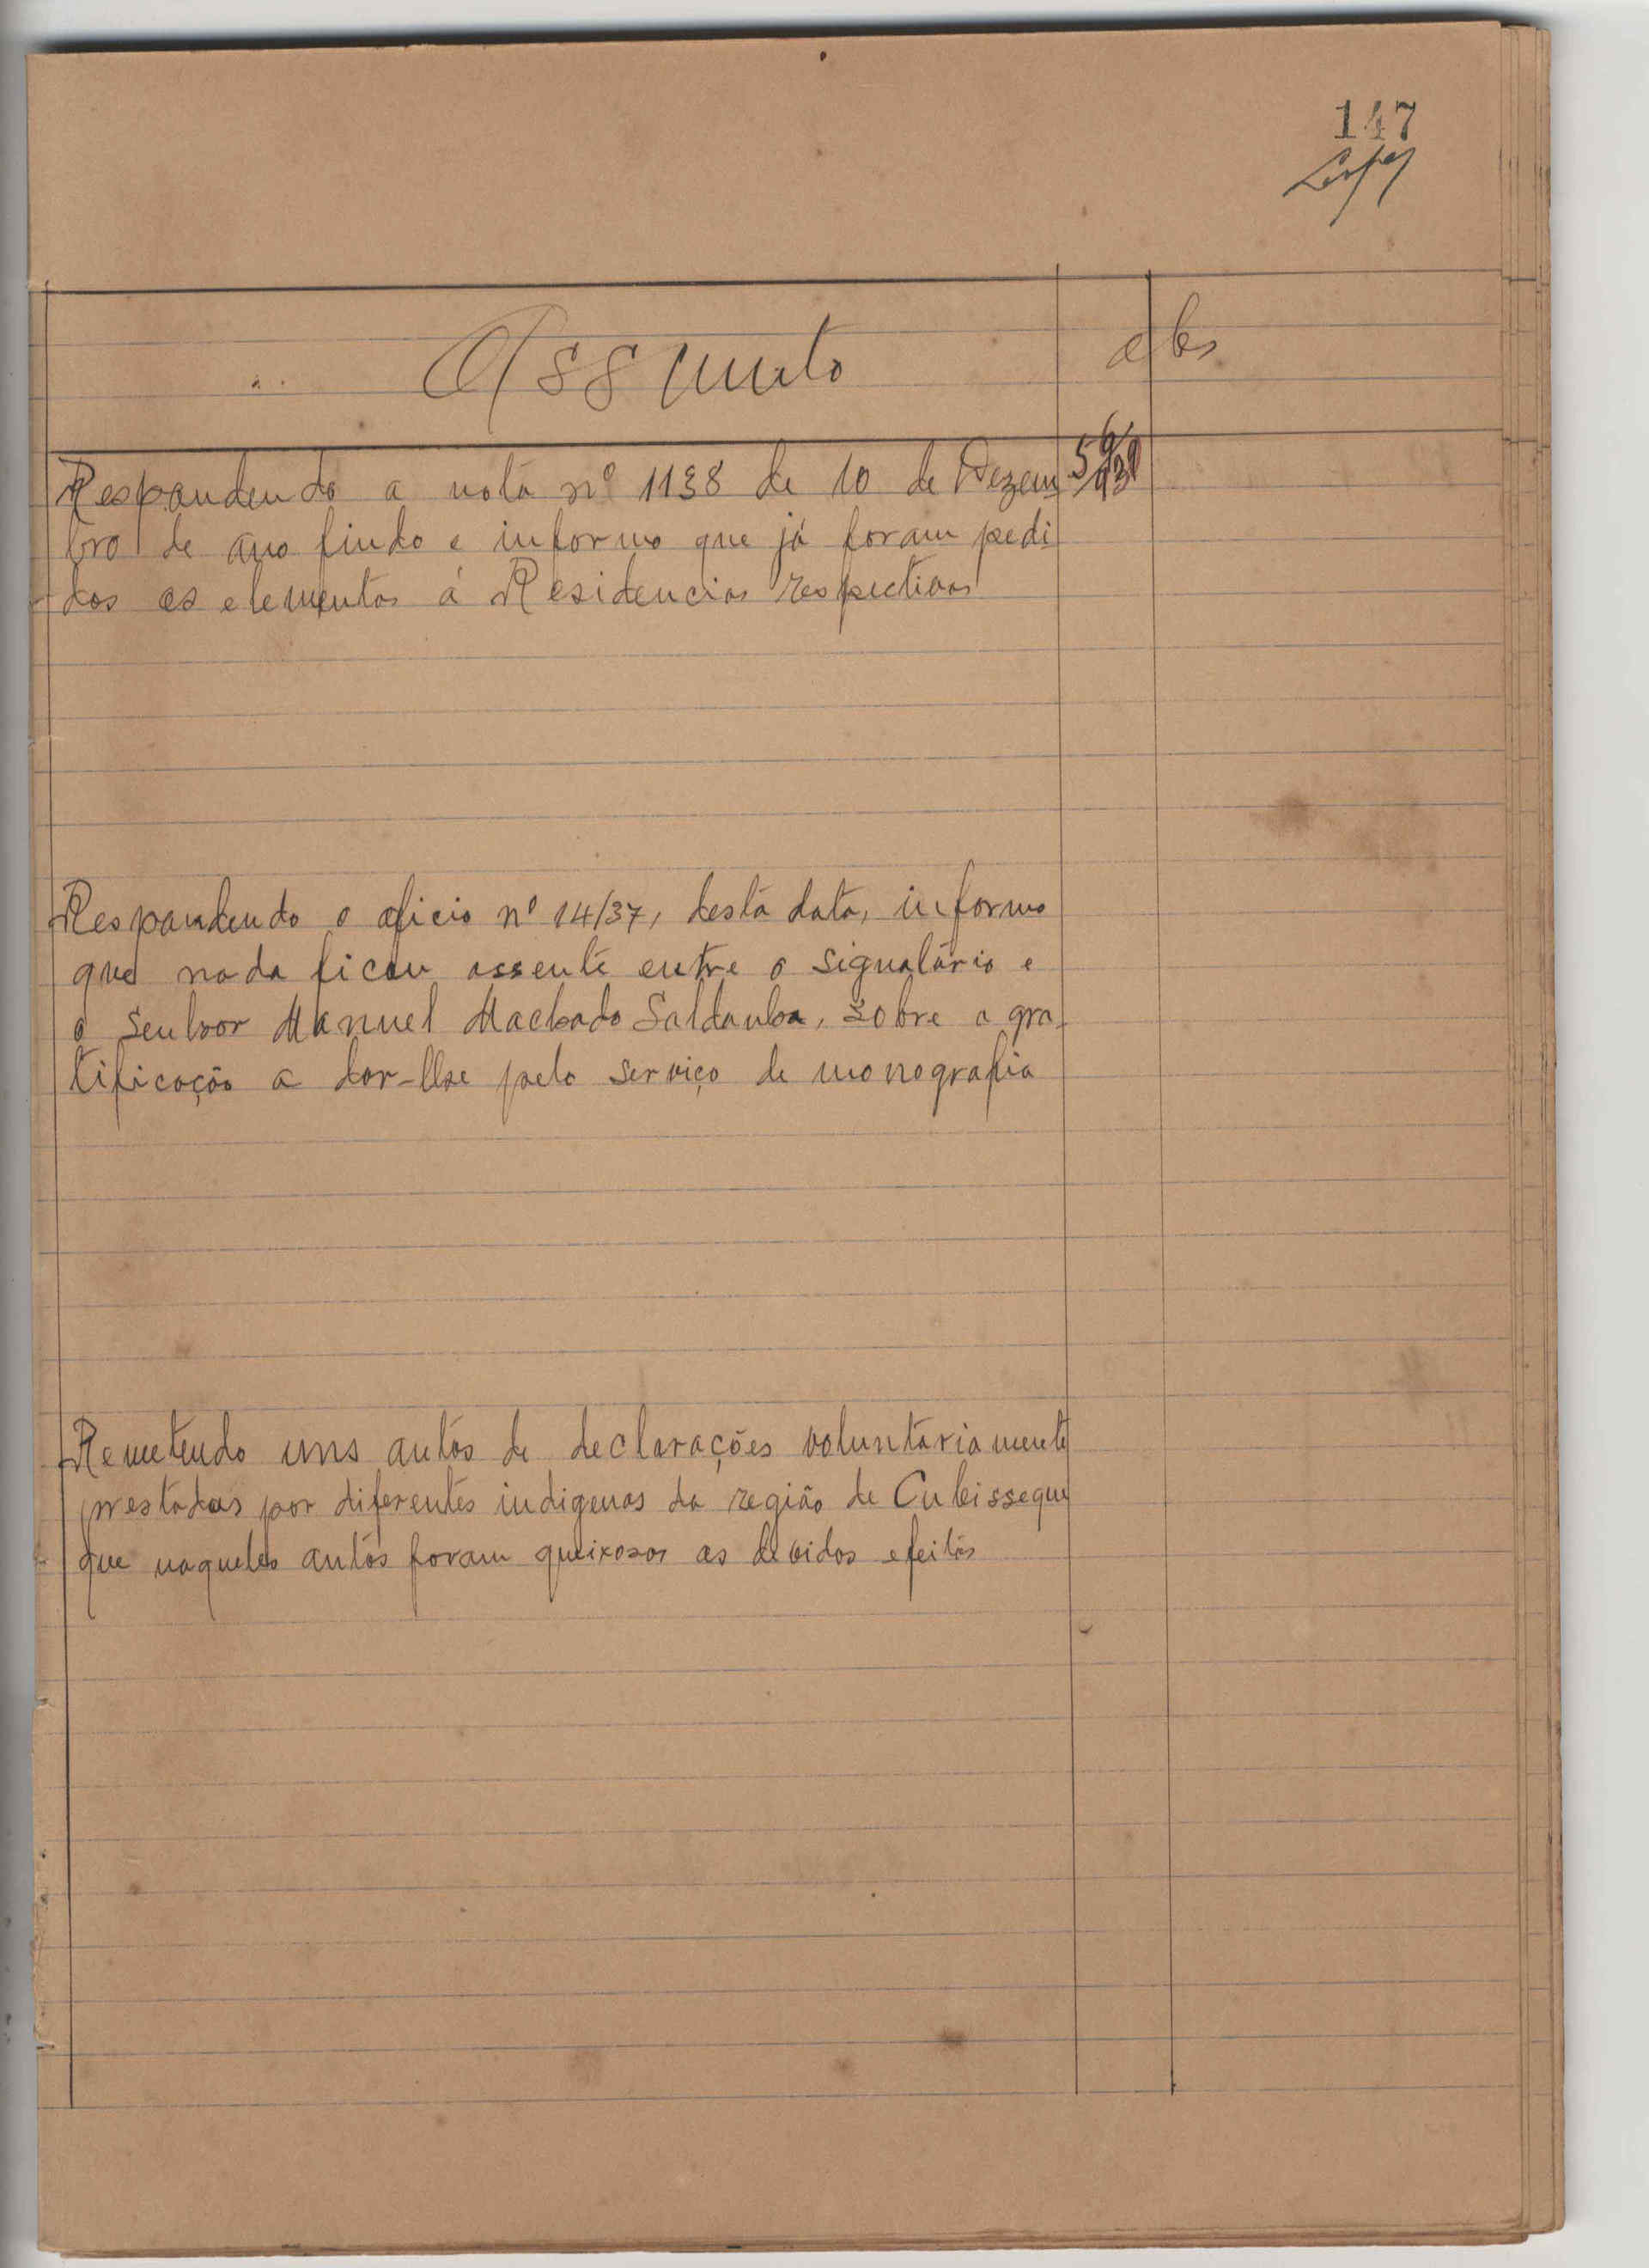 147
Lopes
Assunto
Obs
Respondendo a nota nº 1138 de 10 de Dezem
bro de ano findo e informo que já foram pedi
dos os elementos á Residencias respectivas
Respondendo o oficio nº 14/37, desta data, informo
que nada ficou assente entre o signatário e
o Senhor Manuel Machado Saldanha, sobre a gra-
tificação a dar-lhe pelo serviço de monografia
Remetendo uns autos de declarações voluntariamente
prestadas por diferentes indigenas da região de Cubisseque
que naqueles autos foram queixosos os devidos efeitos